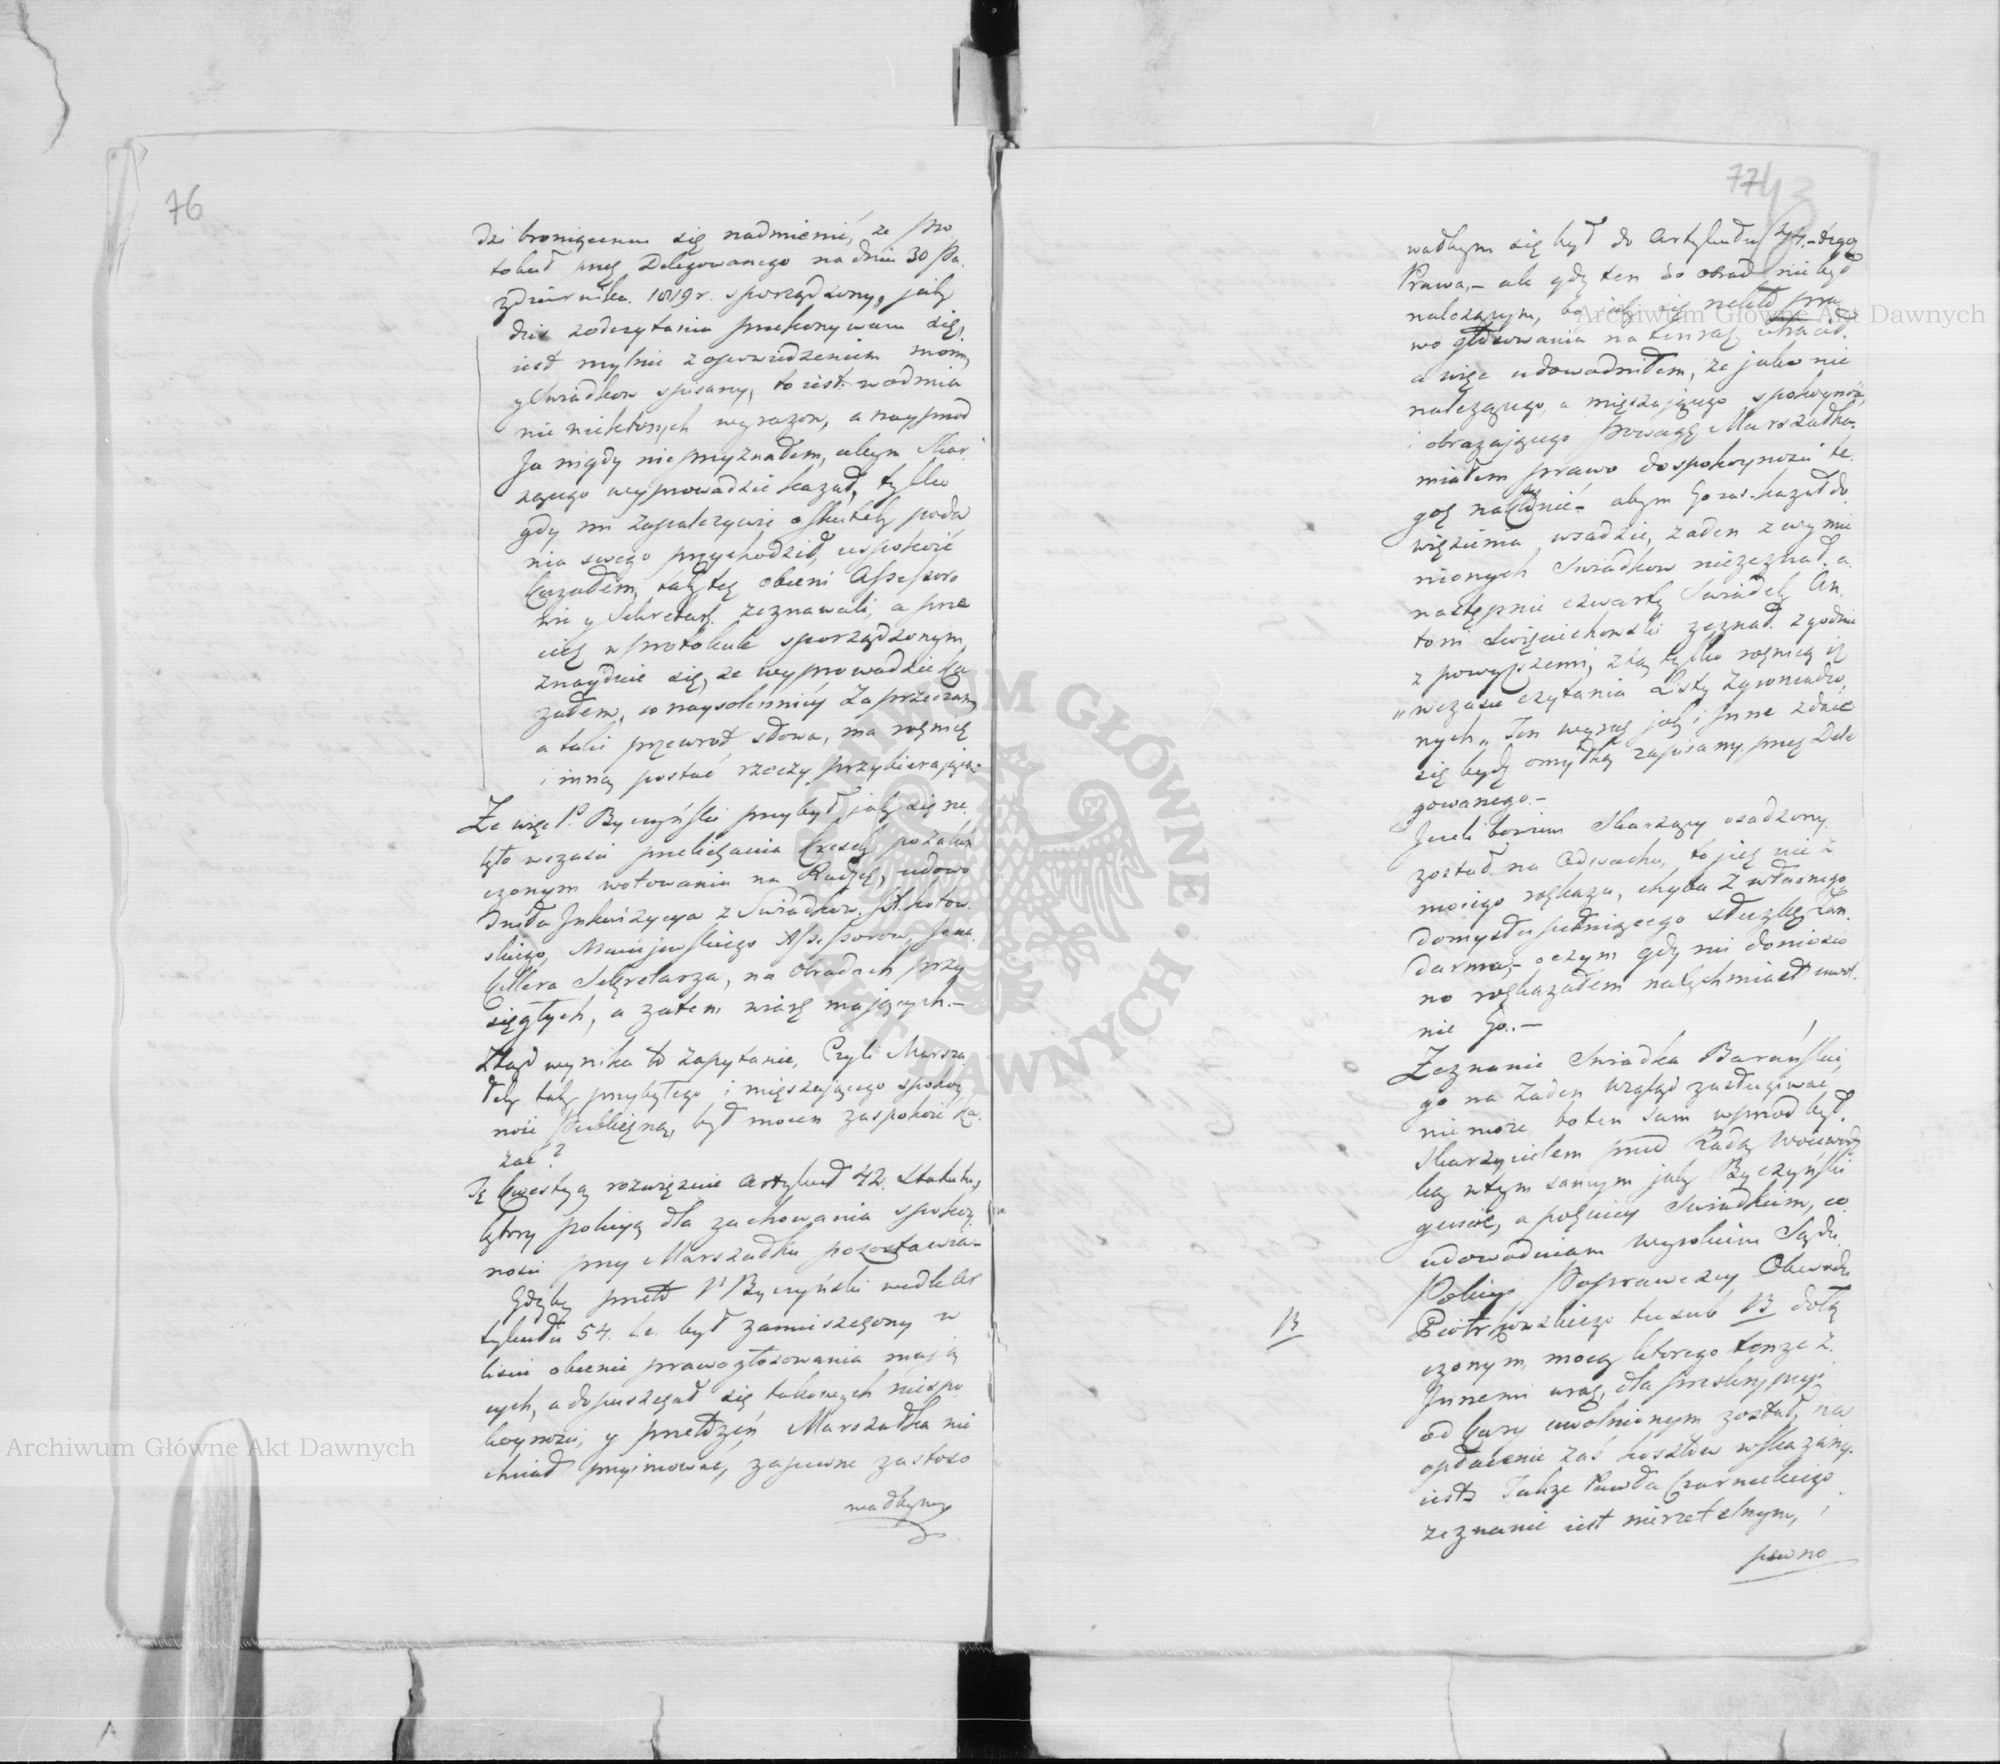 76
dzi broniącemu się nadmienić, że pro
tokuł przez Delegowanego na dniu 30 Pa
zdziernika 1819 r. sporządzony, jak
dziś z odczytania przekonywam się,
iest mylnie z opowiedzeniem moim,
y Swiadkow spisany, to iest: w odmia
nie niektorych wyrazow, a nayprzod
Ja nigdy nie przyznałem, abym Skar
zącego wyprowadzić kazał, tylko
gdy mi zapalczywie o skutek poda
nia swego przychodził, uspokoić
kazałem, tak też obecni Assessoro
wie y Sekretarz zeznawali, a prze
cież w protokule sporządzonym
znayduie się, że wyprowadzić ka
załem, co naysolenniey zaprzeczam
a taki przewrot słowa, ma rożnicę
i inną postać rzeczy przybierającą
Ze więc P. Byczyński przybył jak się rze
kło w czasie przeliczania kresek po zakoń
czonym wotowaniu na Radzcę, udowo
dniła Inkwizycya z Swiadkow
skiego, Maciejewskiego Assessorow,
Kellera Sekretarza, na obradach przy
sięgłych, a zatem wiarę mających.—
Ztąd wynika to zapytanie, Czyli Marsza
łek tak przybyłego i mięszaiącego spokoy
ność Publiczną, był mocen zaspokoić ka
zać?
Tę kwestyą rozwiąznie Artykuł 42. Statutu,
ktory policyą dla zachowania spokoy
ności przy Marszałku pozostawia—
Gdyby przeto P. Byczyński wedle Ar
tykułu 54. był zamieszczony w
liście obecnie prawo głosowania mają
cych, a dopuszczał się takowych niespo
koyności, y przełożeń Marszałka nie
chciał przyimować, zapewne zastoso
wałbym
77 43
wałbym się był do Artykułu 44.— tegoż
Prawa,— ale gdy ten do obrad nie był
należącym, bo jak się rzekło pra
wo głosowania na ten raz utracił.
a więc udowodniłem, że jako nie
należącego, a mięszającego spokoyność,
i obrazającego powagę Marszałka,
miałem prawo do spokoyności te
goż nakłonić— abym Go zaś kazał do
więzienia wsadzić, żaden z wymie
nionych Swiadkow nie zeznał. a
następnie czwarty Swiadek An
toni Święciechowski zeznał zgodnie
z powyższemi, z tą tylko rożnicą iż
„w czasie czytania Listy
nych„ Ten wyraz jak i Inne zdaie
się być omyłką zapisany przez Dele
gowanego.—
Jeżeli bowiem Skarzący osadzony
został na Odwachu, to jest nie z
moiego rozkazu, chyba z własnego
domysłu pełniącego służbę Żan
darma,— o czym gdy mi donieśio
no rozkazałem natychmiast uwol
nić Go.—
Zeznanie Swiadka Barańskie
go na żaden wzgląd zasługiwać
nie może, bo ten sam wprzod był
skarzycielem przed Radą Woiewodz
ką w tym samym jak Byczyński
guście, a poźniey Swiadkiem, co
udowodniam wyrokiem Sądu
Policyi Poprawczey Obwodu
Piotrkowskiego tu sub B dołą
B
czonym, mocą ktorego tenże z
Innemi wraz, dla preskrypcyi
od kary uwolnionym został, na
opłacenie zaś kosztow wskazany
iest. Także Pawła Czarneckiego
zeznanie iest nierzetelnym, i
pewno
Archiwum Główne Akt Dawnych
Archiwum Główne Akt Dawnych
ARCHIWUM GŁÓWNE AKT DAWNYCH